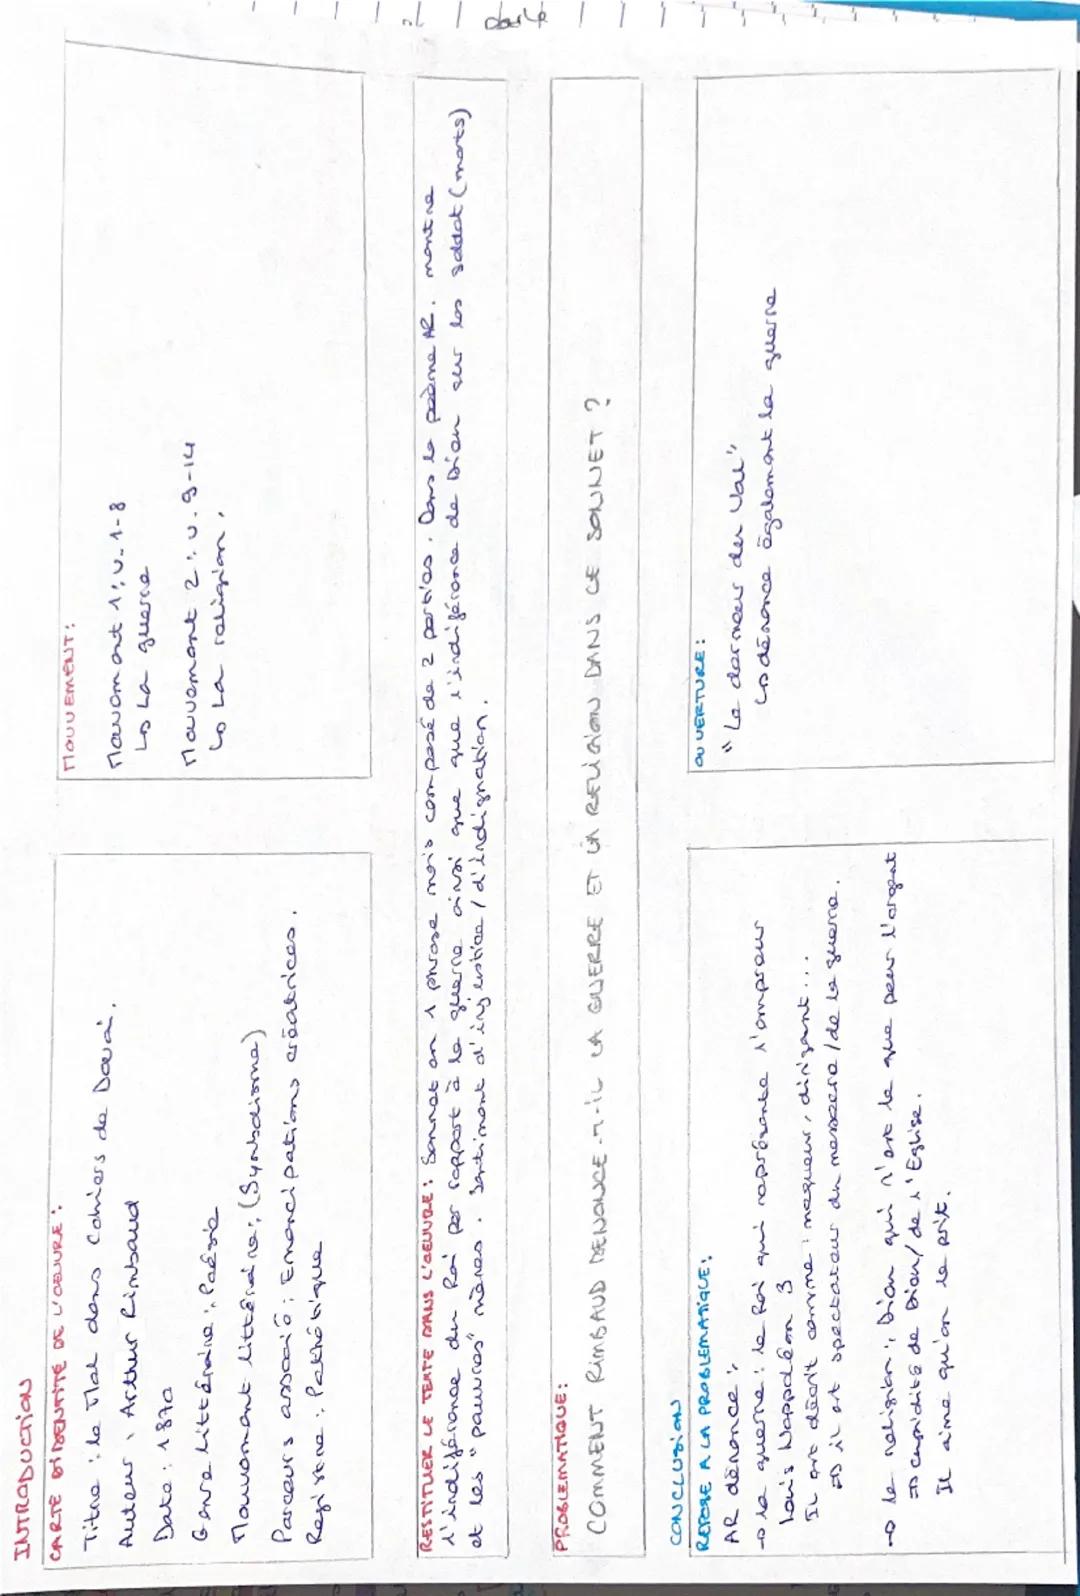 INTRODUCTION
CARTE D'IDENTITE DE L'OEUVRE :
Titre : le Mal dans Cahiers de Douai.
Auteur : Arthur Rimbaud
Date : 1870
Genre littéraire : Poésie
Mouvement littéraire : (Symbolisme)
Parcours associé : Emancipations créatrices.
Registre : Pathétique
MOUVEMENT :
Mouvement 1 : v. 1-8
↳ La guerre
Mouvement 2 : v. 9-14
↳ La religion,
RESTITUER LE TEXTE DANS L'OEUVRE : Sonnet en 1 phrase mais composé de 2 parties. Dans le poème AR. montre
l'indiférance du Roi par rapport à la guerre ainsi que que l'indiférance de Dieu sur les soldat (morts)
et les "pauvres" mères. Sentiment d'injustice / d'indignation.
PROBLEMATIQUE :
COMMENT RIMBAUD DENONCE-T-IL LA GUERRE ET LA RELIGION DANS CE SONNET ?
CONCLUSION
REPONSE A LA PROBLEMATIQUE :
AR dénonce :
→ la guerre : le Roi qui représente l'empreur
louis Nappoléon 3
Il est décrit comme : moqueur, dirigant...
⇒ il est spectateur du massacre / de la guerre.
→ la religion : Dieu qui n'est là que pour l'argent
⇒ cupidité de Dieu / de l'Eglise.
Il aime qu'on le prit.
OUVERTURE :
"Le dormeur der Val"
↳ dénonce également la guerre